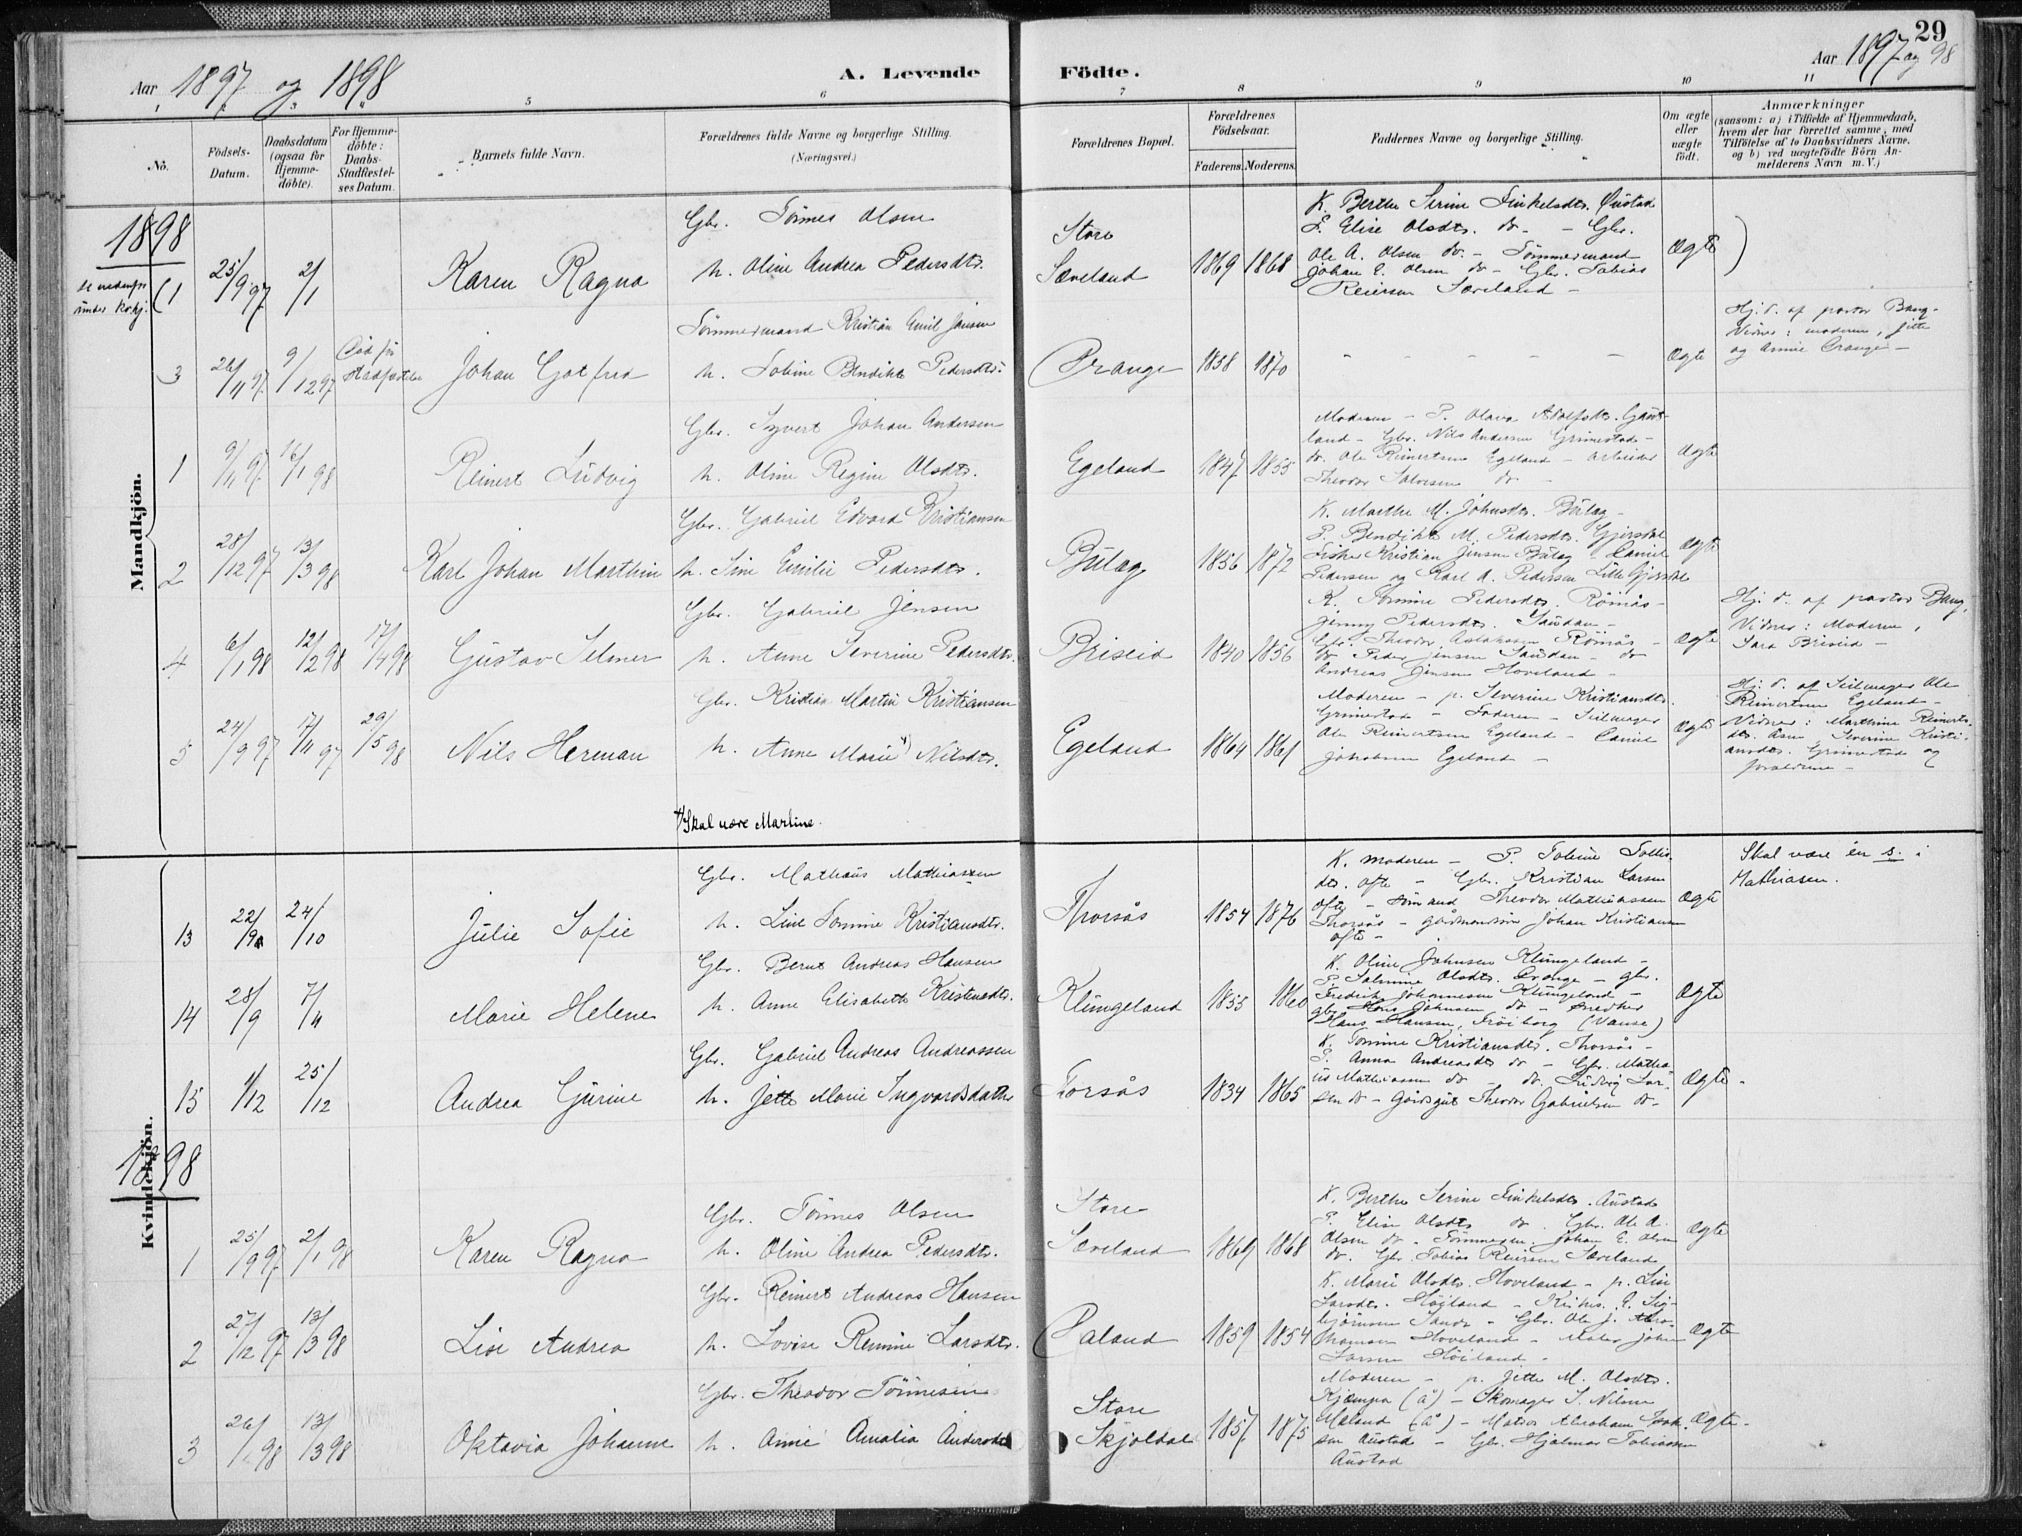 29
Aar 1897 og 1898
A. Levende Födte.
Aar 1897 og 98
1 2 3 4 5 6 7 8 9 10 11
No.
Födsels-Datum.
Daabsdatum (ogsaa for Hjemme-döbte).
For Hjemme-döbte: Daabs-Stadfæstel-ses Datum.
Barnets fulde Navn.
Forældrenes fulde Navne og borgerlige Stilling.
(Næringsvei.)
Forældrenes Bopæl.
Forældrenes Födselsaar.
Faderens. Moderens.
Faddernes Navne og borgerlige Stilling.
Om ægte eller uægte födt.
Anmærkninger
(saasom: a) i Tilfælde af Hjemmedaab, hvem der har forrettet samme, med Tilföielse af to Daabsvidners Navne, og b) ved uægtefödte Börn An-melderens Navn m. V.)
Mandkjön.
1898
se nedenfor
under kvkj.
1 25/9 97 2/1
Karen Ragna
Gbr. Tönnes Olsen
h. Oline Andrea Pedersdtr.
Store
Sæveland
1869 1868
K. Berthe Serine Finkelsdtr. Austad
P. Elise Olsdtr. do - Gbr.
Ole A. Olsen do. - Tömmermand
Johan E. Olsen do - Gbr. Tobias
Reiersen Sæveland -
Ægte
3 26/11 97 9/12 97
Död før
Stadfæstelse
Johan Gotfred
Tömmermand Kristian Emil Jansen
h. Tobine Bendikte Pedersdtr.
Prange
1858 1870
Ægte
Hj. d. af pastor Bang-
Vidner: moderen, Jitte
og Annie Orange -
1 9/11 97 16/1 98
Reinert Ludvig
Gbr. Syvert Johan Andersen
h. Oline Regine Olsdtr.
Egeland
1847 1855
Moderen - P. Olava Adolfsdtr.
land - Gbr. Nils Andersen Grimestad -
do. Ole Reinertsen Egeland - arbeider
Theodor Salvesen do -
Ægte
2 28/12 97 13/3 98
Karl Johan Marthin
Gbr. Gabriel Edvard Kristiansen
h. Sine Emilie Pedersdtr.
Bülag
1856 1872
K. Marthe M. Johnsdtr. Bülag -
P. Bendikte M. Pedersdtr. Gjersdal
Fisker Kristian Jensen Bülag Daniel
Pedersen og Karl A. Pedersen Lille Gjersdal
Ægte
4 6/1 98 12/2 98 17/4 98
Gustav Selmer
Gbr. Gabriel Jensen
h. Anne Severine Pedersdtr.
Briseid
1840 1856
K. Tomine Pedersdtr. Römås -
Jenny Pedersdtr. Saudan -
Gbr. Theodor Aslaksen Römås -
do. Peder Jensen Saudan - do
Andreas Jensen Hoveland -
Ægte
Hj. d. af pastor Bang,
Vidner: Moderen,
Sara Briseid -
5 24/9 97 7/11 97 29/5 98
Nils Herman
Gbr. Kristian Martin Kristiansen
h. Anne Marie *) Nilsdtr.
Egeland
1864 1861
Moderen - p. Severine Kristiansdtr.
Grimestad - Faderen - Seilmager
Ole Reinertsen Egeland - Daniel
Jakobsen Egeland -
Ægte
Hj. d. af Seilmager Ole
Reinertsen Egeland -
Vidner: Marthine Reinerts-
dtr. Severine Kristi-
ansdtr. Grimestad og
forældrene -
*) Skal være Martine.
Kvindekjön.
13 22/9 24/10
Julie Sofie
Gbr. Matheus Mathiassen
h. Line Tomine Kristiansdtr.
Thorsås
1854 1876
K. moderen - P. Tobine Tollis-
dtr. Ofte - Gbr. Kristian Larsen
Ofte - Sömand Theodor Mathiassen
Thorsås - gårdmandsön Johan Kristiansen
Ofte -
Ægte
Skal være én s. i
Mathiasen.
14 28/9 7/11
Marie Helene
Gbr. Bernt Andreas Hansen
h. Anne Elisabeth Kristensdtr.
Klungeland
1855 1860
K. Oline Johnsen Klungeland -
P. Salmine Olsdtr. Orange - gbr.
Fredrik Johannesen Klungeland -
gbr. Hans Johnsen do - Snedker
Hans Hansen, Fröiborg (Vanse)
Ægte
15 1/12 25/12
Andrea Gurine
Gbr. Gabriel Andreas Andreassen
h. Jette Marie Ingvardsdatter
Torsås
1834 1865
K. Tomine Kristiansdtr. Thorsås -
P. Anna Andreasdtr do - Gbr. Mathe-
us Mathiassen do - do. Ludvig Lar-
sen do - Gårdsgut Theodor Gabrielsen do -
Ægte -
1898
1 25/9 97 2/1 98
Karen Ragna
Gbr. Tönnes Olsen
h. Oline Andrea Pedersdtr.
Store
Sæveland
1869 1868
K. Berthe Serine Finkelsdtr. Austad
P. Elise Olsdtr do. Gbr. Ole A.
Olsen do. Tömmerm. Johan E. Olsen
do. Gbr. Tobias Reiersen Sæveland
Ægte
2 27/12 97 13/3 98
Lise Andrea
Gbr. Reinert Andreas Hansen
h. Lovise Remine Larsdtr.
Øaland
1859 1854
K. Marie Olsdtr. Hoveland - p. Lise
Larsdtr. Höiland -
björnsen Sande - Gbr. Ole J. Abra-
hamsen Hoveland - John
Larsen Höiland -
Ægte
3 26/1 98 13/3 98
Oktavia Johanne
Gbr. Theodor Tönnesen
h. Anne Amalia Andersdtr
Store
Skjoldal
1857 1875
Moderen - p. Jitte M. Olsdtr.
Kjæmpa (Å) - Skomager S. Nilsen
Høland (Å) - Matros Abraham Isak-
sen Austad - Gbr. Hjalmar Tobiassen
Austad
Ægte -